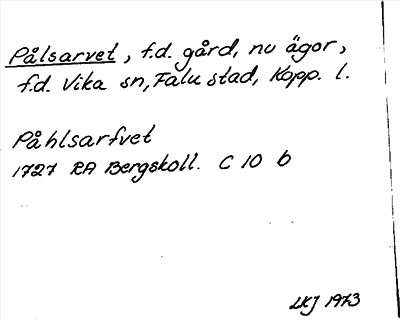 Pålsarvet, f.d. gård, nu ägor,
f.d. Vika sn, Falu stad, Kopp. l.
Påhlsarfvet
1727 RA Bergskoll. C 10 b
LKJ 1973